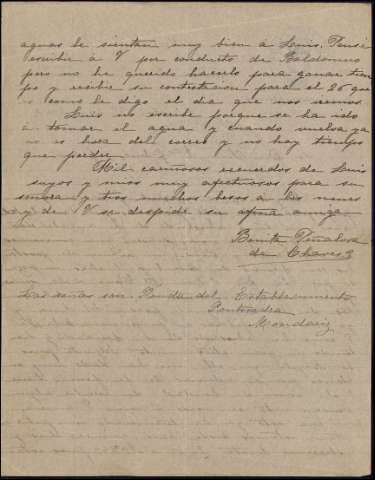 aguas le sientan muy bien á Luis. Pensé
escribir á V por conducto de Baldomero
pero no he querido hacerlo para ganar tiem
po y recibir su contestacion para el 26 que
es como le digo el dia que nos iremos.
Luis no escribe porque se ha ido
á tomar el agua y cuando vuelva ya
no es hora del correo y no hay tiempo
que perder.
Mil cariñosos recuerdos de Luis
suyos y mios muy afectuosos para su
señora y tros muchos besos á los nenes
y de V se despide su afma amiga
Benita Peñalosa
de Chaves
Las señas son Fonda del Establecimiento
Pontevedra
Mondariz